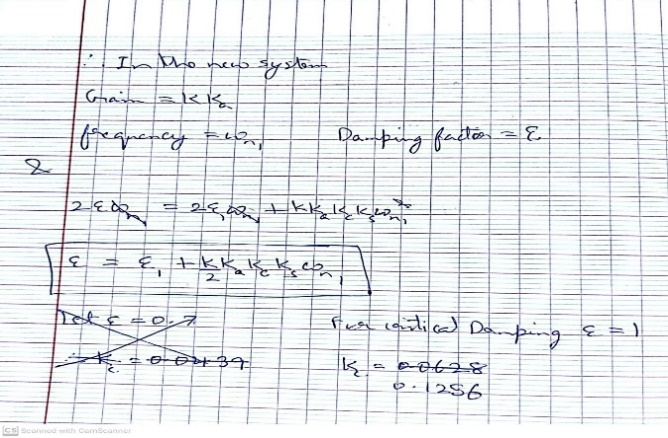 ∴ In the new system
Gain = K Ka
frequency = ωn1 Damping factor = ε
&
2εωn1 = 2ε1ωn1 + K Ka Kε Ks ωn1²
ε = ε1 + K/2 Ka Kε Ks ωn1
Let ε = 0.7 For critical Damping ε = 1
∴ Kε = 0.00439 Kε = 0.0628
0.1256
CS Scanned with CamScanner